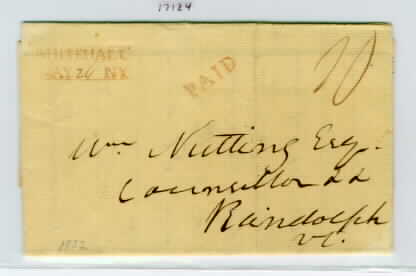 17124
WHITEHALL
MAY 26 NY
PAID
10
Wm Nutting Esq.
Councillor &c
Randolph
Vt.
1832